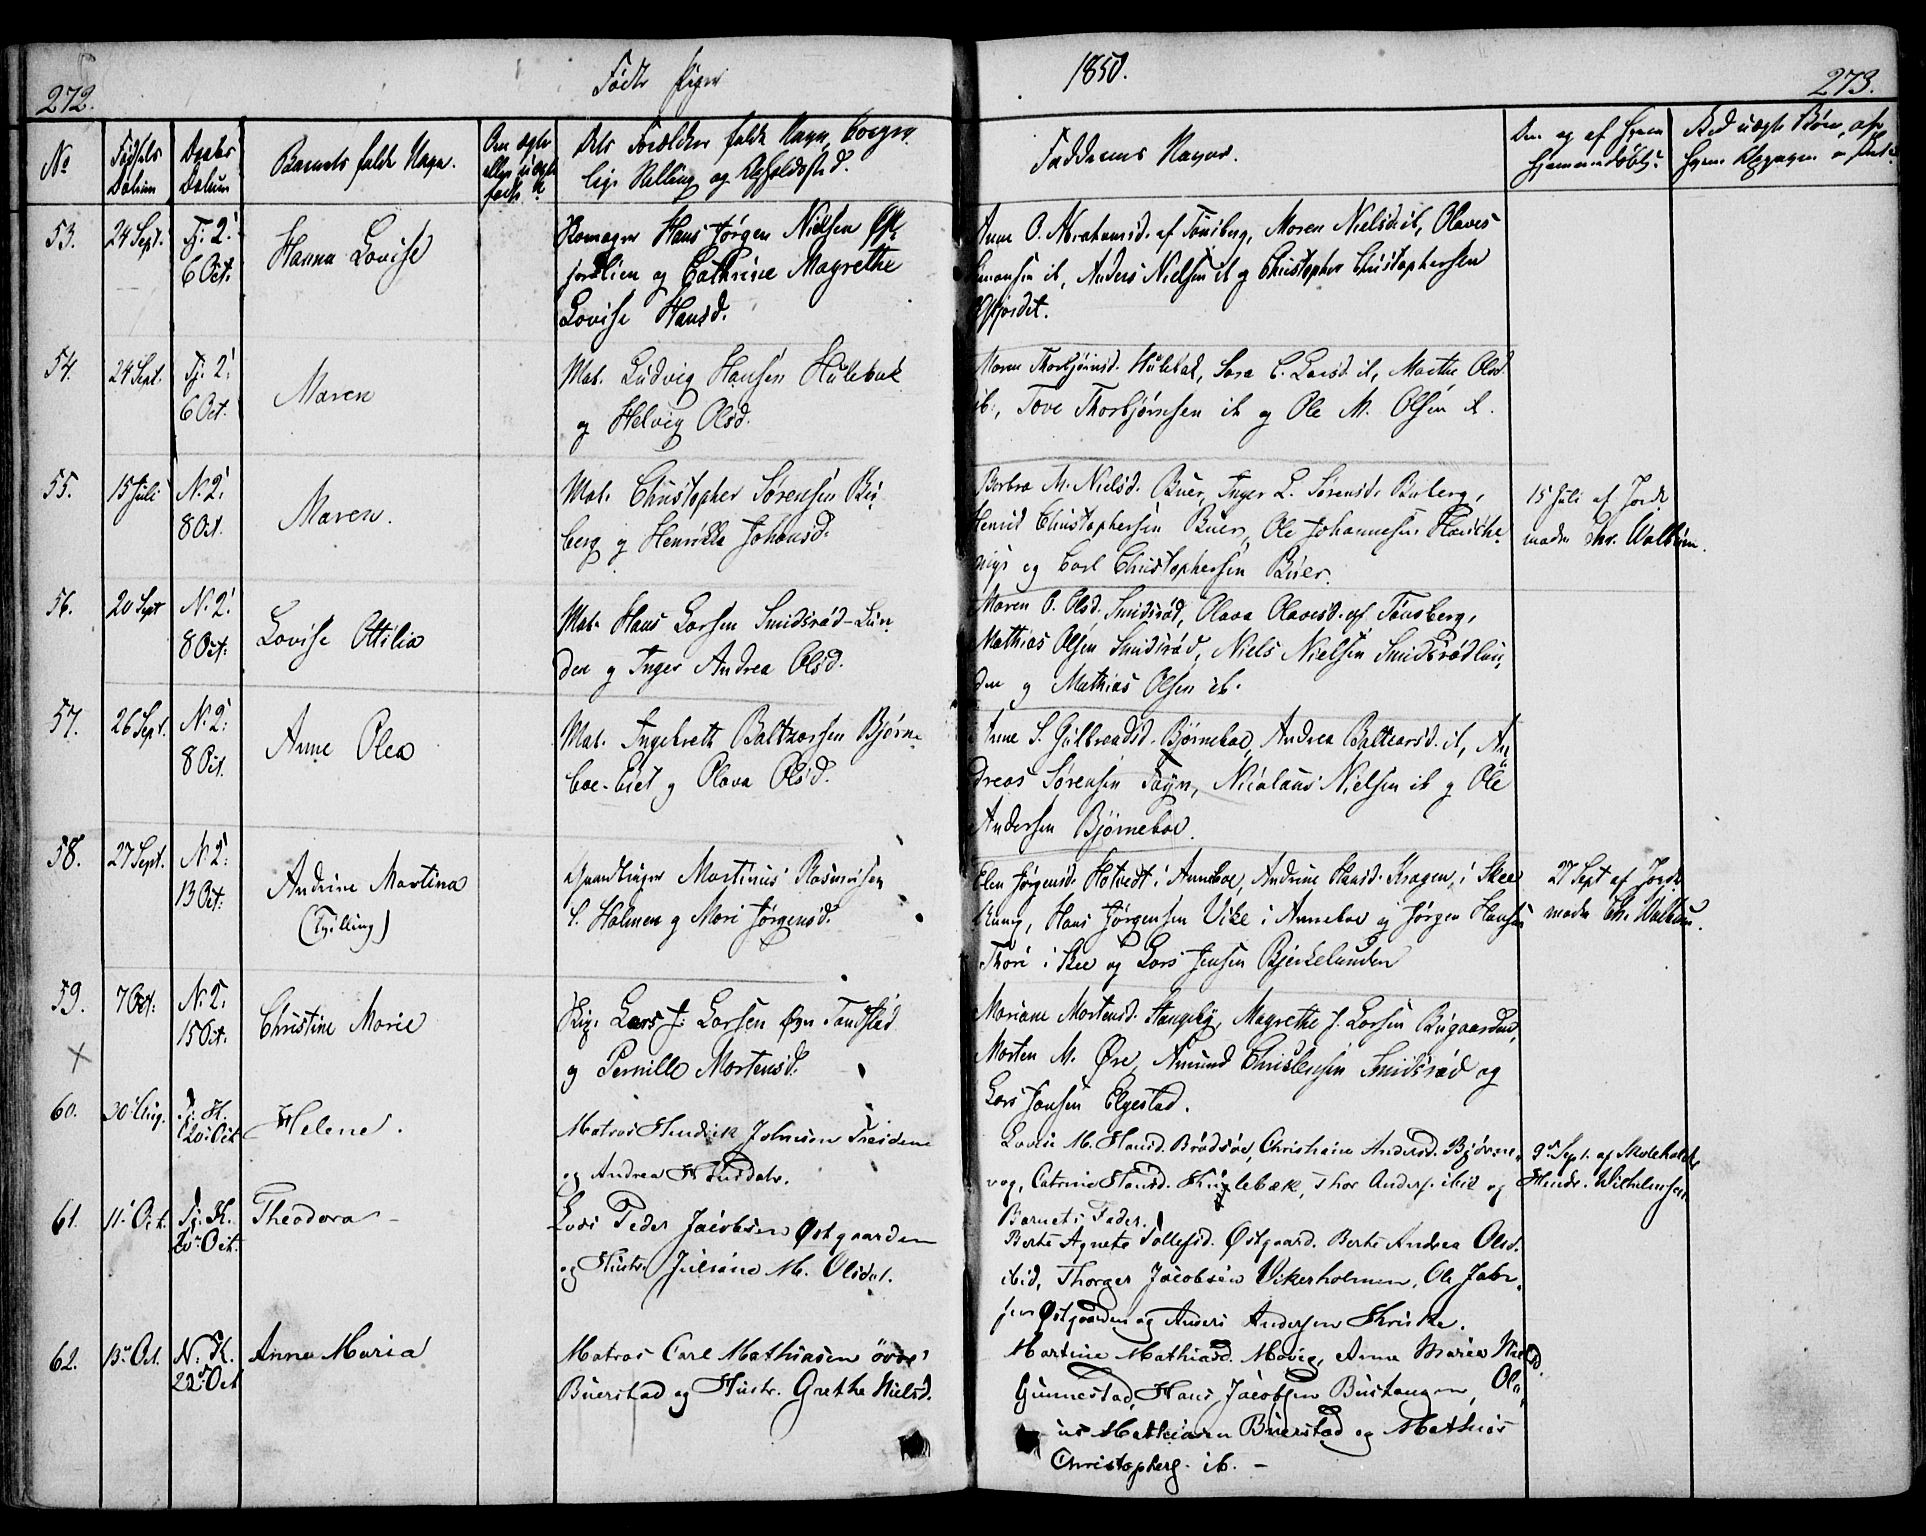 272.
Födte Piger
1850.
273.
No
Fødsels Datum
Daabs Datum
Barnets fulde Navn.
Om ægte eller uægte født
Dets Forældres fulde Navn, borger-
lige Stilling og Opholdssted.
Faddernes Navne.
Om og af hvem
hjemmedøbt
Ved uægte Børn,
53.
24 Sept.
Tj. 2:
6 Oct:
Hanna Lovise
Hans Jørgen Nielsen
og Cathrine Magrethe
Lovise Hansd.
Anne O. Abrahamsd. af Tønsberg, Maren Nielsd. ib, Olaves
Simonsen ib, Anders Nielsen ib og Christopher Christophersen
54.
24 Sept.
Tj. 2:
6 Oct:
Maren
Mat. Ludvig Hansen Hulebak
og Helvig Olsd.
Maren Thorbjørnsd. Hulebak, Sara C. Larsd. ib, Marthe Olsd
ib., Tove Thorbjørnsen ib og Ole M. Olsen ib.
55.
15 Juli
N. 2:
8 Oct.
Maren.
Mat. Christopher Sørensen Bu-
berg og Henrikka Johansd.
Berbra M. Nielsd. Buer, Inger L. Sørensd. Buberg,
Christophersen Buer, Ole Johannesen
og Carl Christophersen Buer.
15 Juli af Jorde
moder Chr. Walbum.
56.
20 Sept
N. 2:
8 Oct:
Lovise Ottilia
Mat. Hans Larsen Smidsrød-Lun-
den og Inger Andrea Olsd.
Maren O. Olsd. Smidsrød, Olava Olavesd. af Tønsberg,
Mathias Olsen Smidsrød, Niels Nielsen Smidsrødlun-
den og Mathias Olsen ib.
57.
26 Sept.
N. 2:
8 Oct.
Anne Olea
Mat. Ingebreth Baltzarsen Bjørne-
boe-Eiet og Olava Olsd.
Anne S. Gulbrandsd. Bjørneboe, Andrea Baltzarsd. ib, An-
dreas Sørensen Fayn, Nicolaus Nielsen ib og Ole
Andersen Bjørneboe.
58.
27 Sept.
N. 2:
13 Oct:
Andrine Martina
(Tvilling)
Martinus Rasmusen
S. Holmen og Mari Jørgensd.
Elen Jørgensd. Hotvedt i Anneboe, Andrine Hansd. Kragen i Skee
Hans Jørgensen Vike i Anneboe og Jørgen Hansen
Thori i Skee og Lars Jensen Bjerkelunden
27 Sept af Jorde
moder Chr. Walbum.
59.
×
7 Oct:
N. 2:
15 Oct.
Christine Marie
Lars J. Larsen Øvre Tandstad
og Pernille Mortensd.
Mariane Mortensd. Stangeby, Magrethe J. Larsen Bugaarden,
Morten M. Øre, Amund Christensen Smidsrød og
Lars Jansen Elgestad.
60.
30 Aug.
Tj. K.
20 Oct
Helene.
Matros Hendrik Johnsen
og Andrea Hansdatr.
Lovise M. Hansd. Brødsøe, Christiane Andersd. Bjørne-
vog, Catrine Hansd. Thor Anders. ibid og
Barnets Fader.
9de Sept. af Skoleholder
Hendr. Wilhelmsen
61.
11 Oct.
Tj. K.
20 Oct.
Theodora -
Lods Peder Jacobsen Østgaarden
og Hustr. Juliane M. Olsdat.
Berte Agnete Tollefsd. Østgaard. Berte Andrea Olsd.
ibid, Thorger Jacobsen Vikerholmen, Ole
Østgaarden og Anders Andersen
62.
13 Oct.
N. K.
22 Oct
Anna Maria
Matros Carl Mathiasen øvre
Buerstad og Hustr. Grethe Nielsd.
Martine Mathiasd. Movig, Anna Maria
Gunnestad, Hans Jacobsen Bustangen, Ol-
us Mathiasen Buerstad og Mathias
Christophers. ib. -